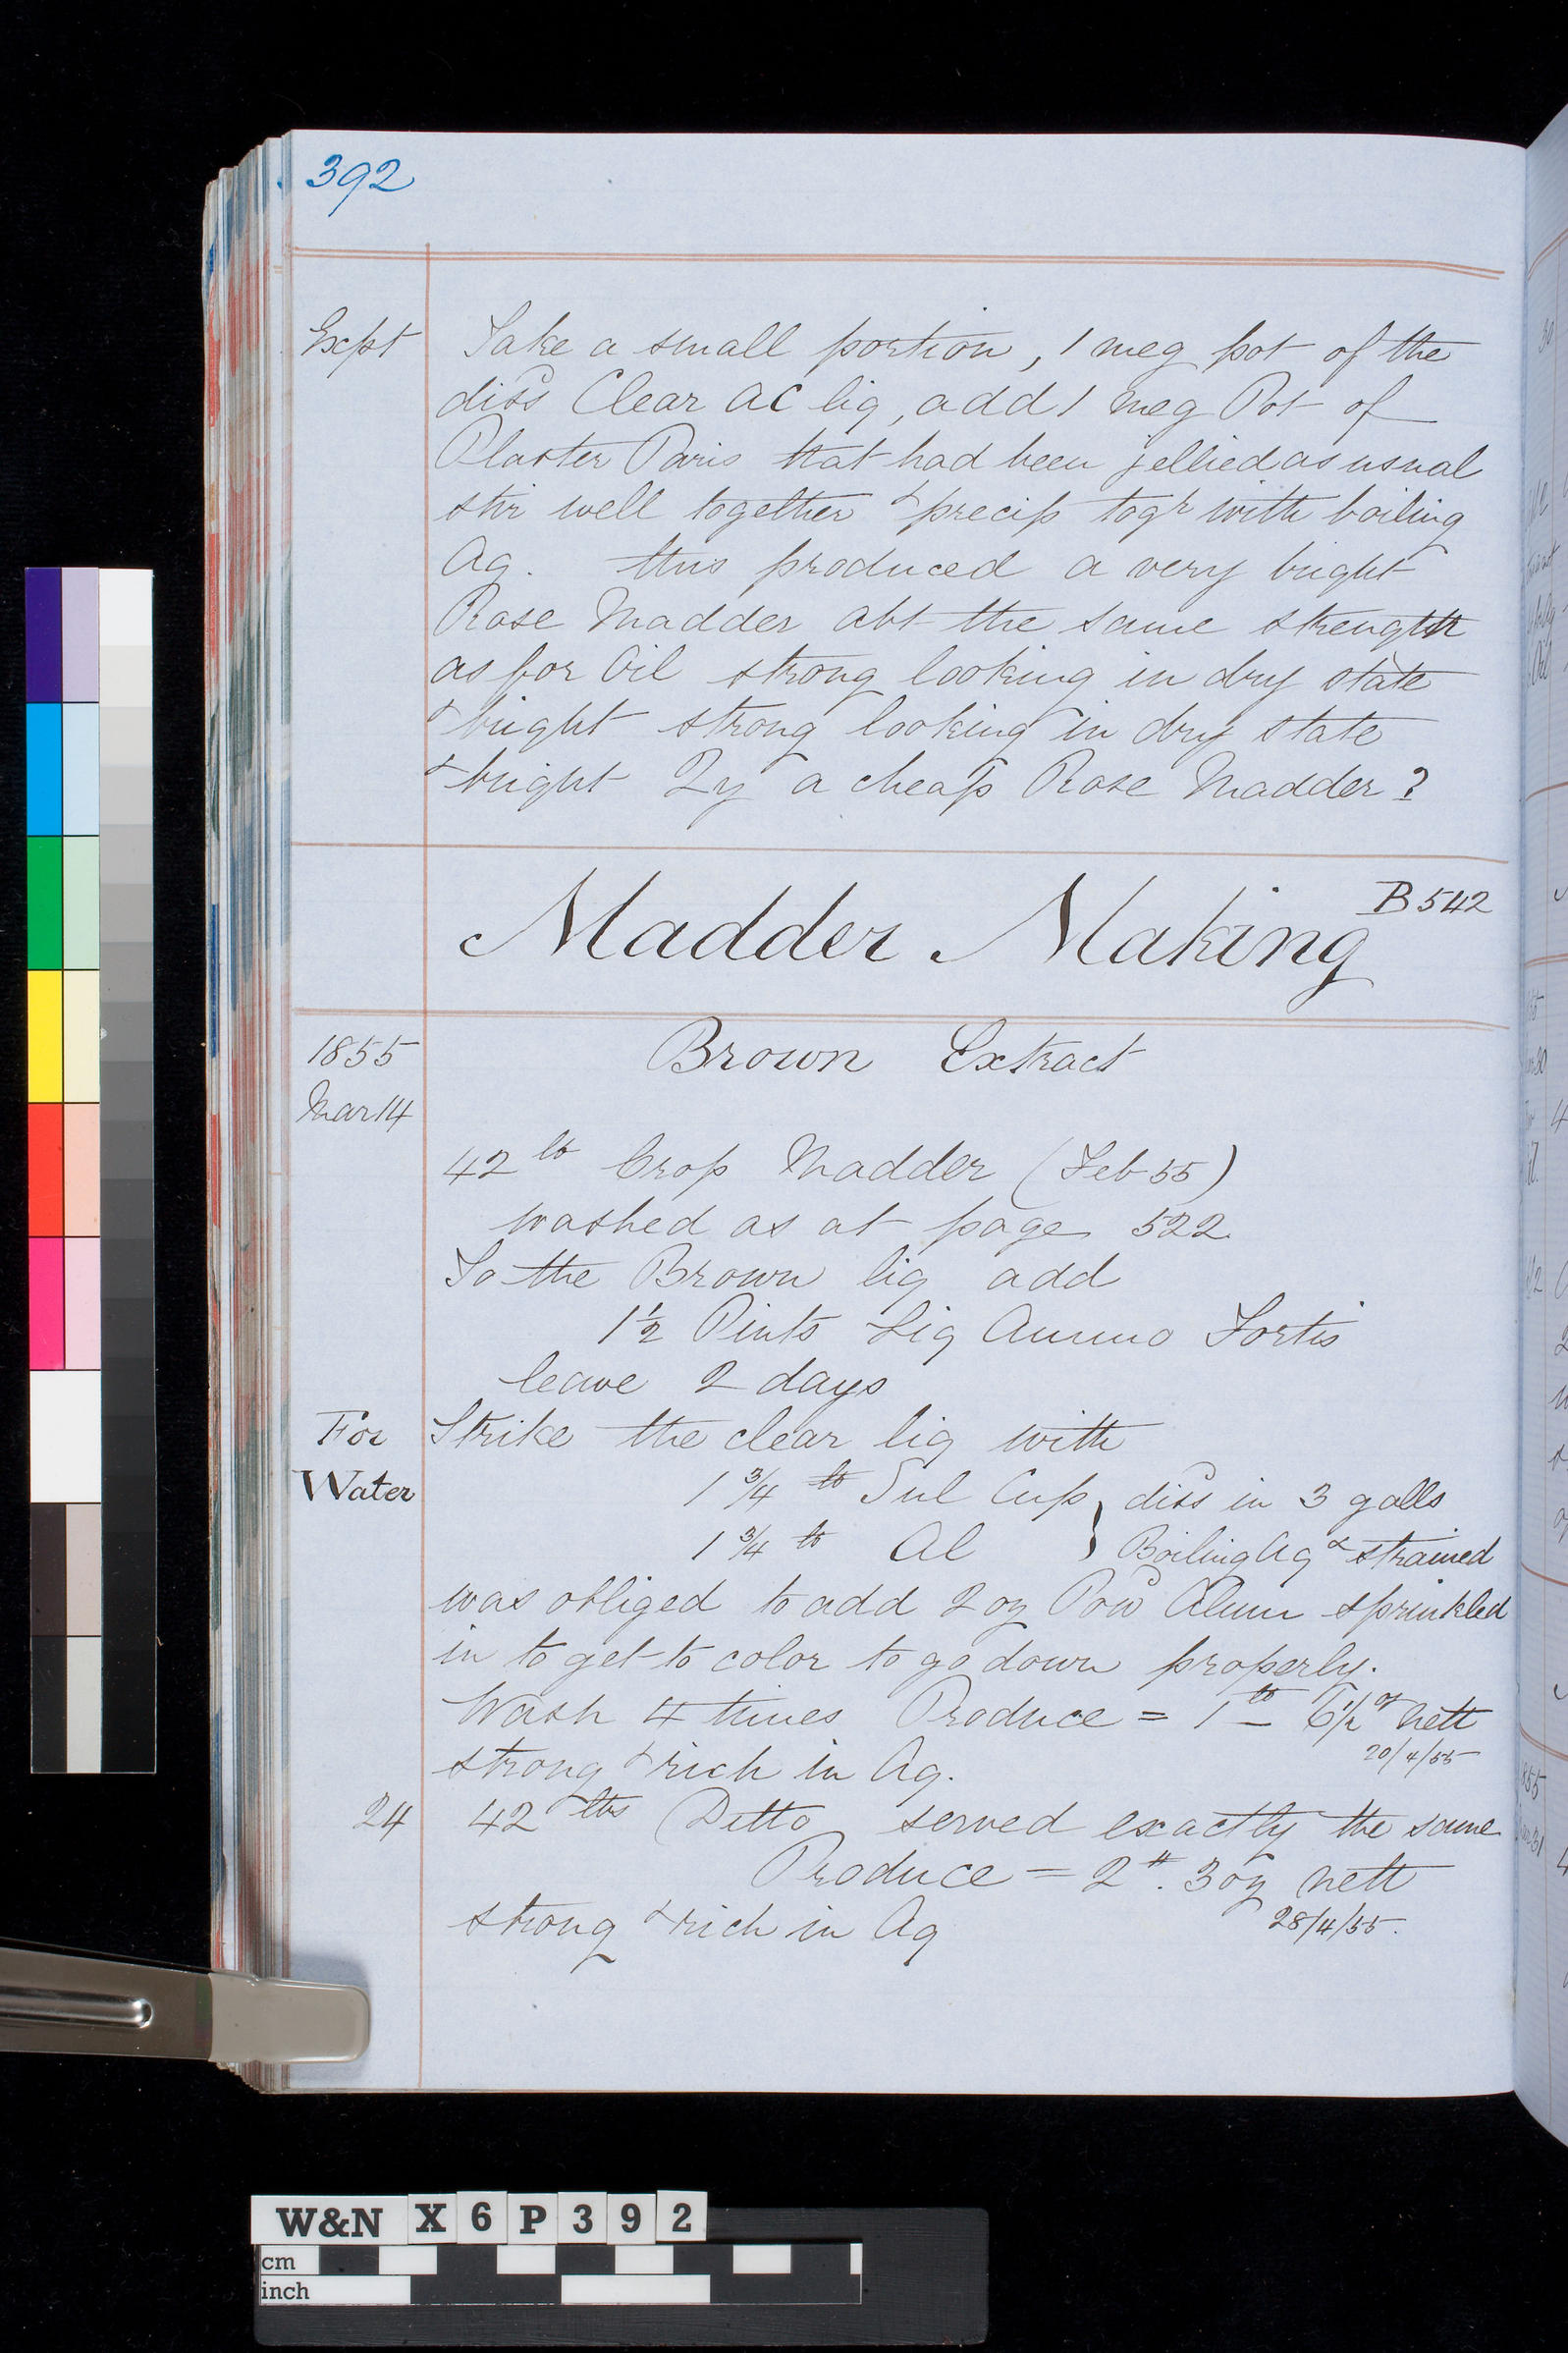 392
Expt Take a small portion, 1 meg pot of the
dissd Clear AC liq, add 1 meg Pot of
Plaster Paris that had been jellied as usual
stir well together & precip togr with boiling
Aq. this produced a very bright
Rose Madder abt the same strength
as for Oil strong looking in dry state
& bright strong looking in dry state
& bright Qy a cheap Rose Madder?
Madder Making B542
1855 Brown Extract
Mar 14
42 lb Crop Madder (Feb 55)
washed as at page 522
To the Brown liq add
1½ Pints Liq Ammo Fortis
leave 2 days
For Strike the clear liq with
Water 1 3/4 lb Sul Cup } dissd in 3 galls
1 3/4 lb Al } Boiling Aq & strained
was obliged to add 2 oz Powd Alum sprinkled
in to get to color to go down properly.
Wash 4 times Produce = 1 lb – 6½ oz nett
20/4/55
strong & rich in Aq.
24 42 lbs Ditto served exactly the same
Produce = 2 #. 3 oz nett
strong & rich in Aq 28/4/55.
W&N X 6 P 3 9 2
cm
inch